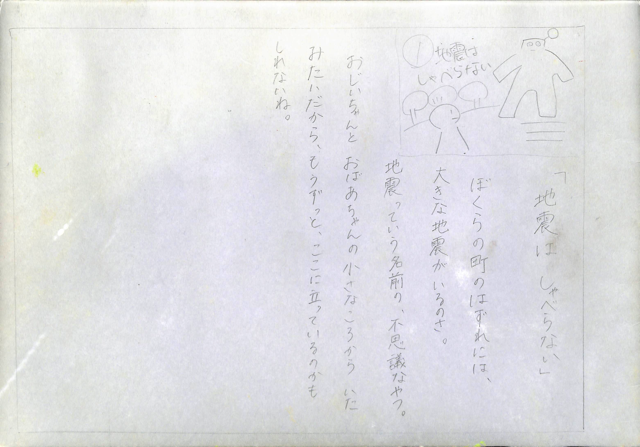 ① 地震は
しゃべらない
「地震は しゃべらない」
ぼくらの町のはずれには、
大きな地震がいるのさ。
地震っていう名前の、不思議なやつ。
おじいちゃんと おばあちゃんの小さなころから いた
みたいだから、もうずっと、ここに立っているのかも
しれないね。